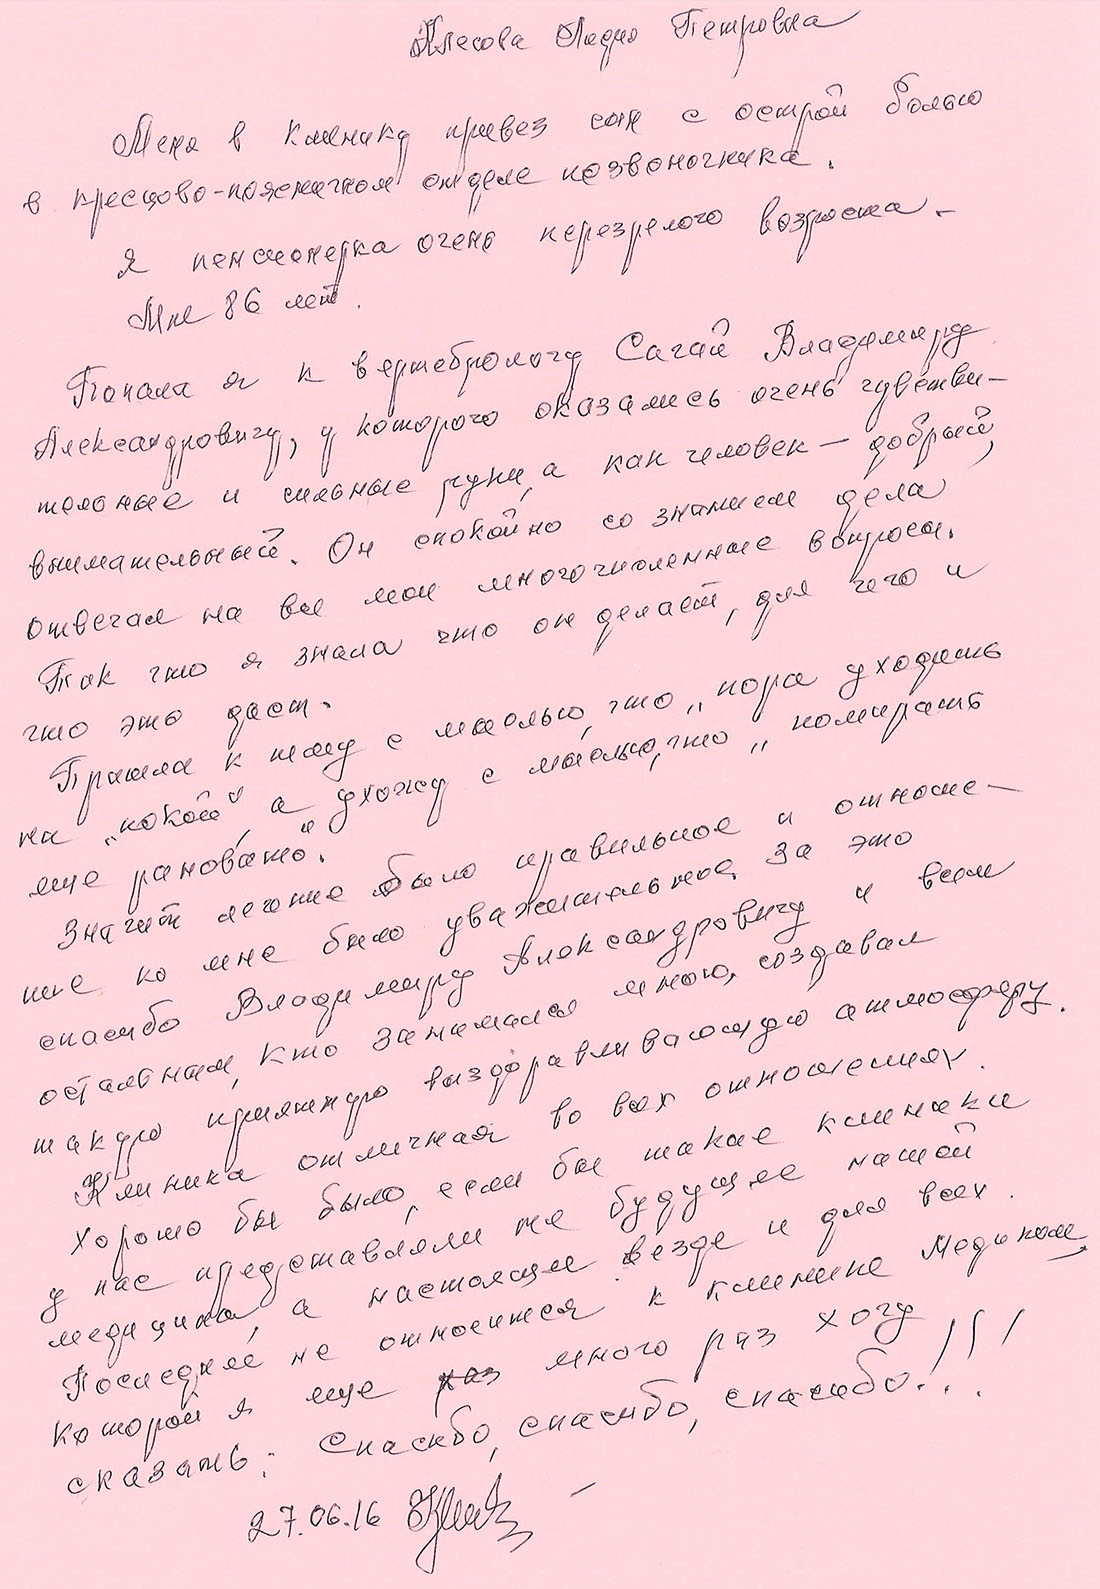 Клесова Лидия Петровна
Меня в клинику привез сын с острой болью
в кресцово-поясничном отделе позвоночника.
Я пенсионерка очень перезрелого возраста -
Мне 86 лет.
Попала я к вертебрологу Сагай Владимиру
Александровичу, у которого оказались очень чувстви-
тельные и сильные руки, а как человек - добрый,
внимательный. Он спокойно со знанием дела
отвечал на все мои многочисленные вопросы.
Так что я знала что он делает, для чего и
что это даст.
Пришла к нему с мыслью, что „пора уходить
на „покой", а ухожу с мыслью, что „помирать
еще рановато".
Значит лечение было правильное и отноше-
ние ко мне было уважительное. За это
спасибо Владимиру Александровичу и всем
остальным, кто занимался мною, создавал
такую приятную выздоравливающую атмосферу.
Клиника отличная во всех отношениях.
Хорошо бы было, если бы такие клиники
у нас представляли не будущее нашей
медицины, а настоящее везде и для всех.
Последнее не относится к клинике Медиком,
которой я еще раз много раз хочу
сказать: Спасибо, спасибо, спасибо!!!
27.06.16